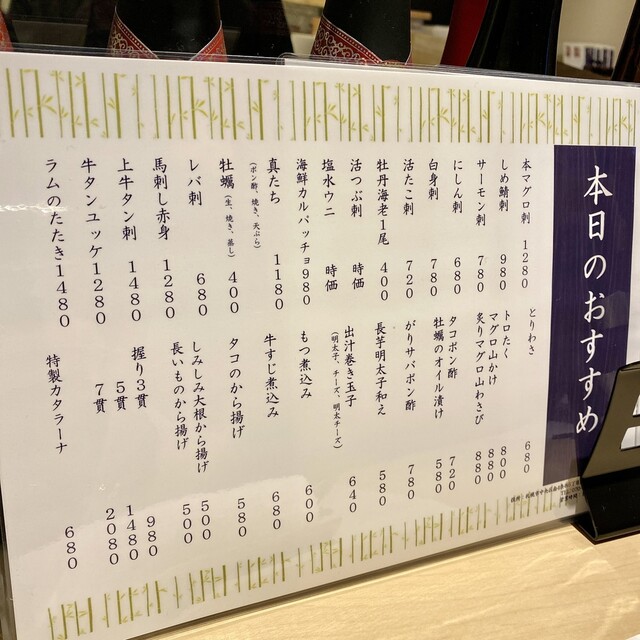 本日のおすすめ
本マグロ刺 1280
しめ鯖刺 980
サーモン刺 780
にしん刺 680
白身刺 780
活たこ刺 720
牡丹海老1尾 400
活つぶ刺 時価
塩水ウニ 時価
海鮮カルパッチョ980
真たち 1180
(ポン酢、焼き、天ぷら)
牡蠣(生、焼き、蒸し) 400
レバ刺 680
馬刺し赤身 1280
上牛タン刺 1480
牛タンユッケ1280
ラムのたたき1480
とりわさ 680
トロたく 800
マグロ山かけ 880
炙りマグロ山わさび 880
タコポン酢 720
牡蠣のオイル漬け 580
がりサバポン酢 780
長芋明太子和え 580
出汁巻き玉子 640
(明太子、チーズ、明太チーズ)
もつ煮込み 600
牛すじ煮込み 680
タコのから揚げ 580
しみしみ大根から揚げ 500
長いものから揚げ 500
握り3貫 980
5貫 1480
7貫 2080
特製カタラーナ 680